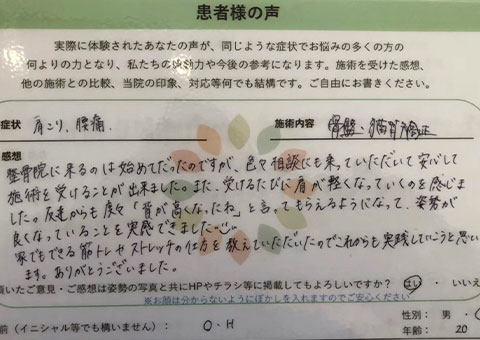 患者様の声
実際に体験されたあなたの声が、同じような症状でお悩みの多くの方の
何よりの力となり、私たちの原動力や今後の参考になります。施術を受けた感想、
他の施術との比較、当院の印象、対応等何でも結構です。ご自由にお書きください。
症状 肩こり、腰痛、 施術内容 骨盤・猫背矯正
感想
整骨院に来るのは始めてだったのですが、色々相談にも乗っていただいて安心して
施術を受けることが出来ました。また、受けるたびに肩が軽くなっていくのを感じま
した。友達からも度々「背が高くなったね」と言ってもらえるようになって、姿勢が
良くなっていることを実感できました
家でもできる筋トレやストレッチの仕方を教えていただいたのでこれからも実践していこうと思い
ます。ありがとうございました。
頂いたご意見・ご感想は姿勢の写真と共にHPやチラシ等に掲載してもよろしいですか? はい ・ いいえ
※お顔は分からないようにぼかしを入れますのでご安心ください
前(イニシャル等でも構いません): O・H 性別: 男 ・
年齢: 20